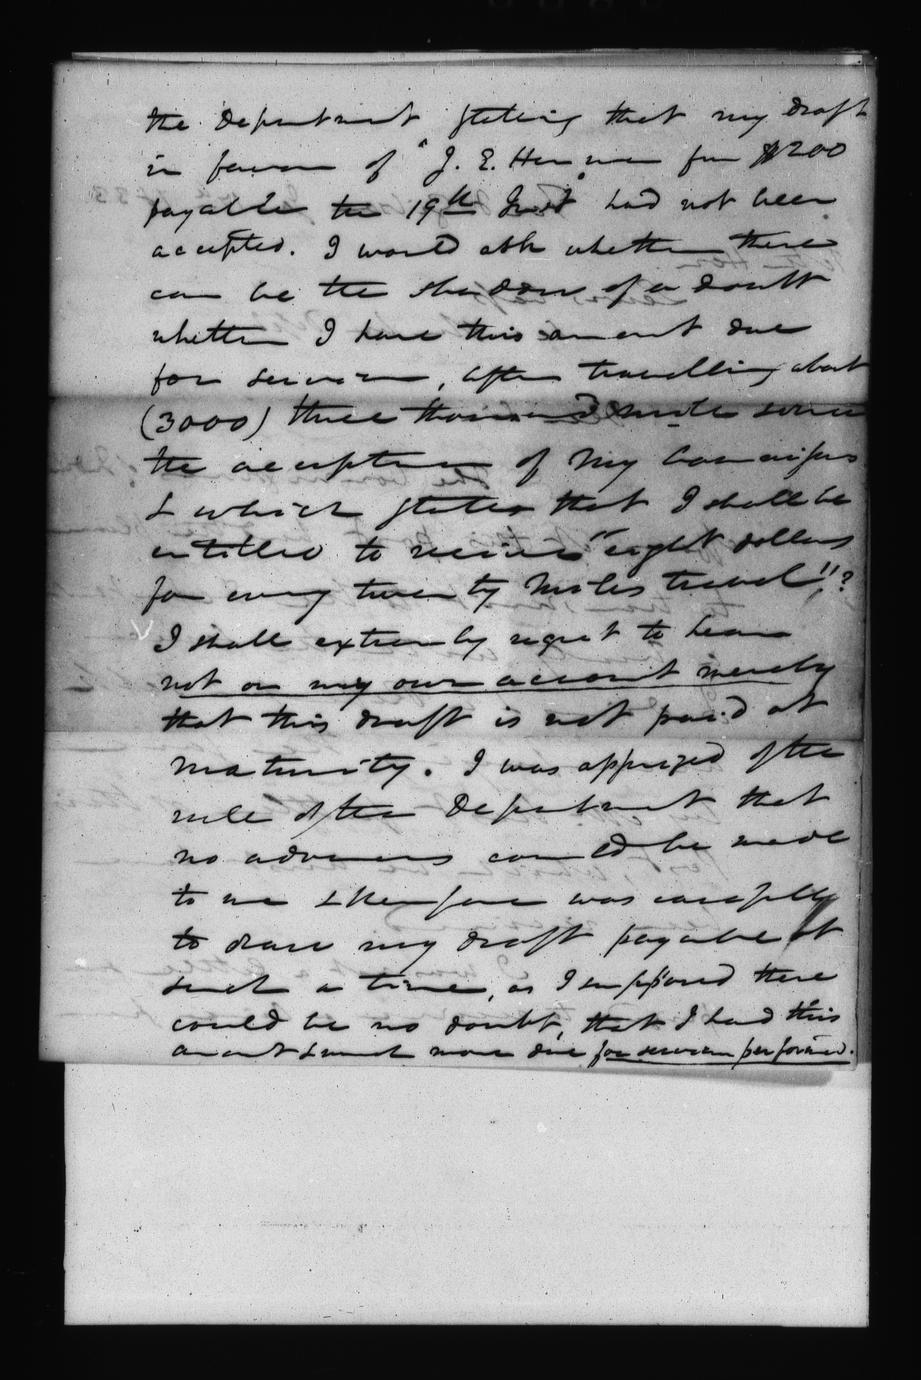 the department stating that my draft
in favor of J. E. Herman for $200
payable the 19th Inst had not been
accepted. I would ask whether there
can be the shadow of a doubt
whether I have this amount due
for services, after travelling about
(3000) three thousand miles since
the acceptance of my Commission
& which states that I shall be
entitled to receive "eight dollars
for every twenty miles travel"!?
I shall extremely regret to hear
not on my own account merely
that this draft is not paid at
maturity. I was apprized of the
rule of the Department that
no advances could be made
to me & therefore was careful
to draw my draft payable at
such a time, as I supposed there
could be no doubt, that I had this
amount & much more due for services performed.